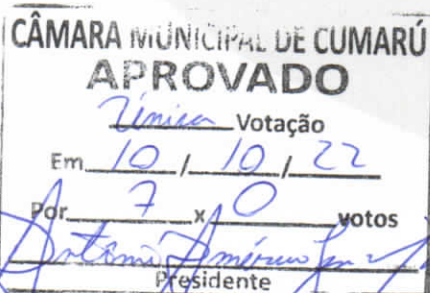 CÂMARA MUNICIPAL DE CUMARÚ
APROVADO
Única Votação
Em 10 / 10 / 22
Por 7 x 0 votos
Antonio Américo
Presidente